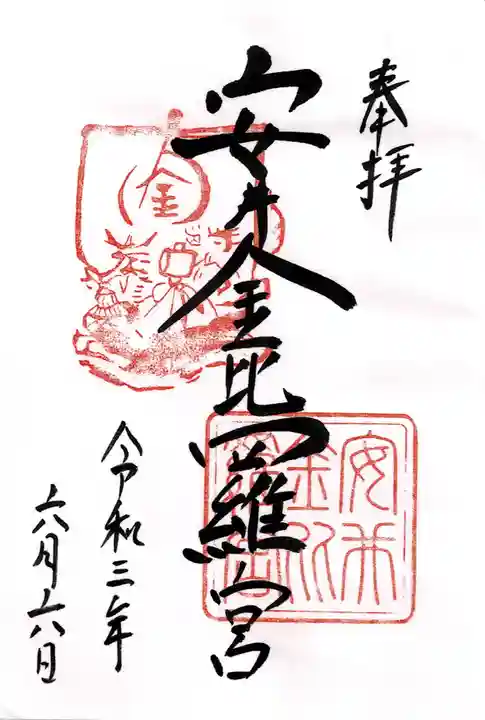 奉拝
安井金比羅宮
令和三年
六月六日
金
安井金比羅宮